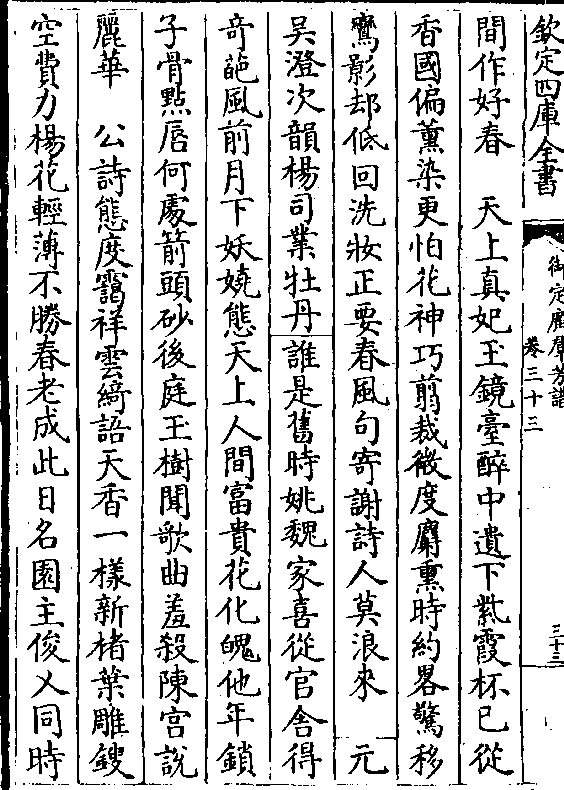 欽定四庫全書
御定廣羣芳譜
卷三十三
三十三
間作好春　天上真妃玉鏡臺醉中遺下紫霞杯已從
香國偏薰染更怕花神巧剪裁微度麝熏時約畧驚移
鸞影却低回洗妝正要春風句寄謝詩人莫浪來　元
吳澄次韻楊司業牡丹誰是舊時姚魏家喜從官舍得
奇葩風前月下妖嬈態天上人間富貴花化魄他年鎖
子骨點唇何處箭頭砂後庭玉樹聞歌曲羞殺陳宮說
麗華　公詩態度靄祥雲綺語天香一樣新楮葉雕鎪
空費力楊花輕薄不勝春老成此日名園主俊乂同時